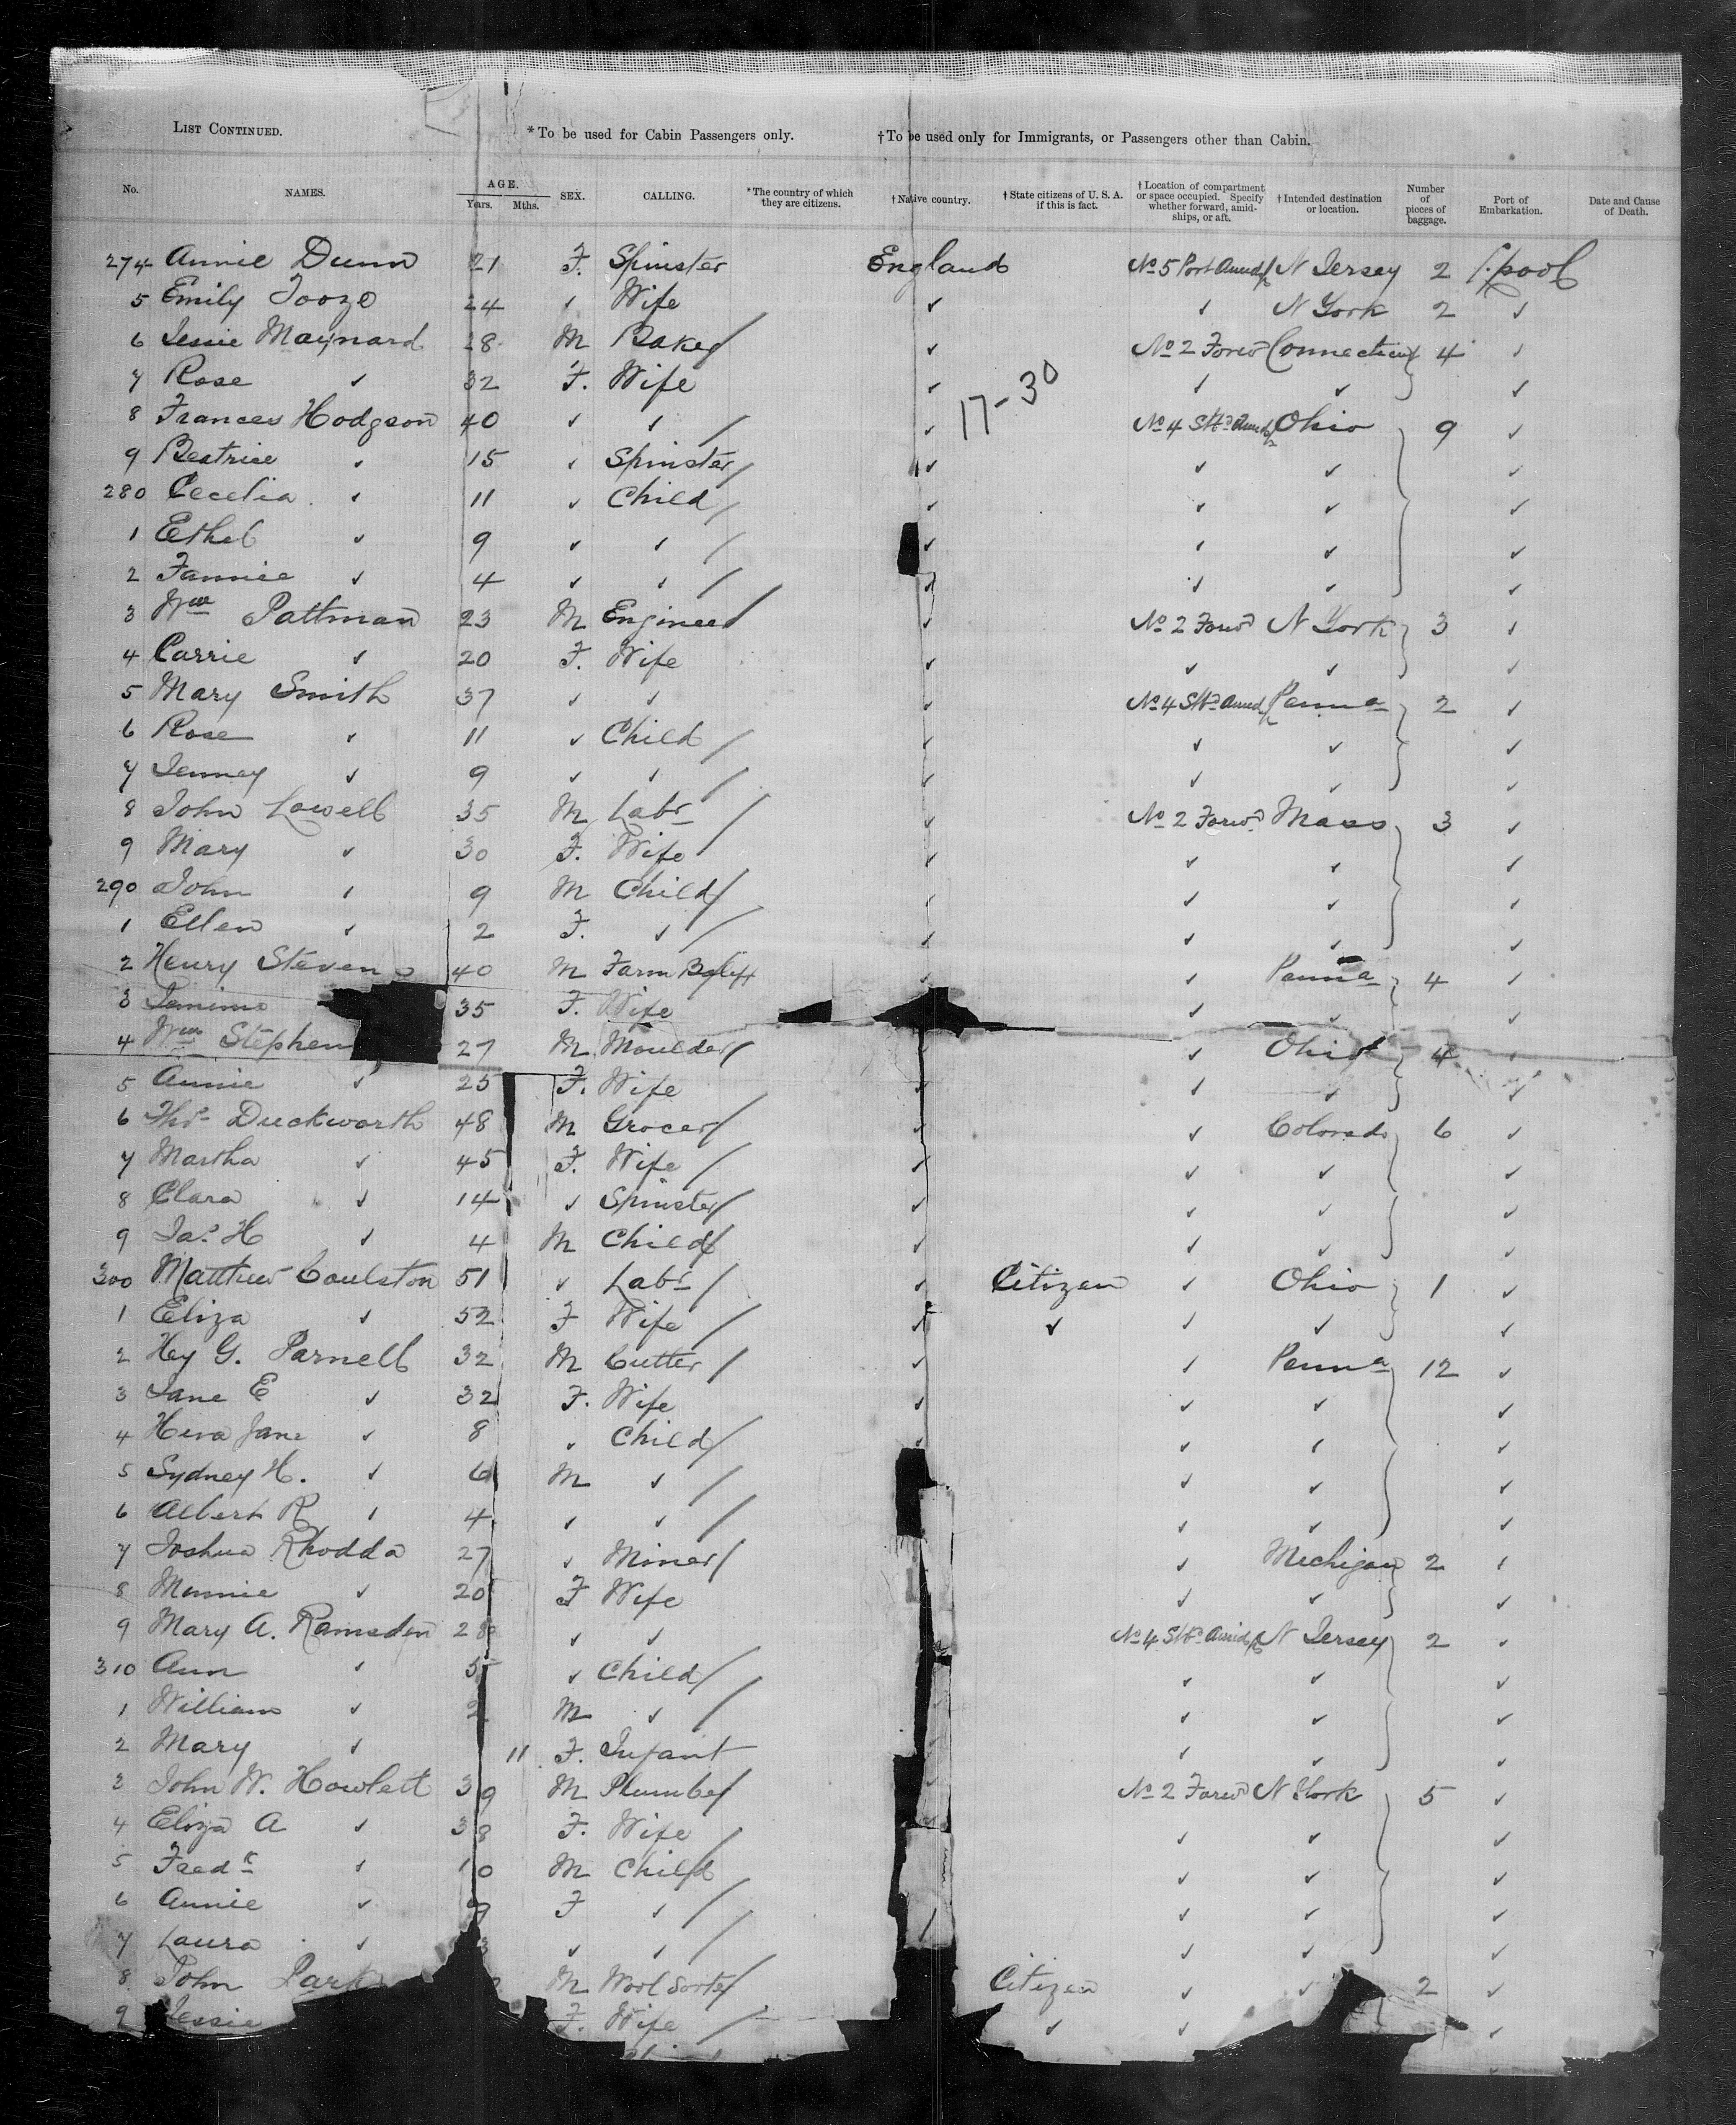 LIST CONTINUED. *To be used for Cabin Passengers only. †To be used only for Immigrants, or Passengers other than Cabin.
No. NAMES. AGE. Years. Mths. SEX. CALLING. *The country of which they are citizens. †Native country. †State citizens of U. S. A. if this is fact. †Location of compartment or space occupied. Specify whether forward, amidships, or aft. †Intended destination or location. Number of pieces of baggage. Port of Embarkation. Date and Cause of Death.
274 Annie Dunn 21 F. Spinster England No 5 Port Amid N Jersey 2 L'pool
5 Emily Tooze 24 ✓ Wife ✓ ✓ N York 2 ✓
6 Jessie Maynard 28 M Baker ✓ No 2 Forwd Connecticut 4 ✓
7 Rose ✓ 32 F. Wife ✓ 17-30 ✓ ✓ ✓
8 Frances Hodgson 40 ✓ ✓ ✓ No 4 Stbd Amid Ohio 9 ✓
9 Beatrice ✓ 15 ✓ Spinster ✓ ✓ ✓ ✓
280 Cecelia ✓ 11 ✓ Child ✓ ✓ ✓ ✓
1 Ethel ✓ 9 ✓ ✓ ✓ ✓ ✓ ✓
2 Fannie ✓ 4 ✓ ✓ ✓ ✓ ✓ ✓
3 Wm Pattman 23 M Engineer ✓ No 2 Forwd N York 3 ✓
4 Carrie ✓ 20 F. Wife ✓ ✓ ✓ ✓
5 Mary Smith 37 ✓ ✓ ✓ No 4 Stbd Amid Penna 2 ✓
6 Rose ✓ 11 ✓ Child ✓ ✓ ✓ ✓
7 Jenney ✓ 9 ✓ ✓ ✓ ✓ ✓ ✓
8 John Lowell 35 M Labr ✓ No 2 Forwd Mass 3 ✓
9 Mary ✓ 30 F. Wife ✓ ✓ ✓ ✓
290 John ✓ 9 M Child ✓ ✓ ✓ ✓
1 Ellen ✓ 2 F. ✓ ✓ ✓ ✓ ✓
2 Henry Stevens 40 M Farm ✓ ✓ Penna 4 ✓
3 Jemima 35 F. Wife ✓ ✓ ✓
4 Wm Stephen 27 M Moulder ✓ ✓ Ohio 4 ✓
5 Annie ✓ 25 F. Wife ✓ ✓ ✓ ✓
6 Thos Duckworth 48 M Grocer ✓ ✓ Colorado 6 ✓
7 Martha ✓ 45 F. Wife ✓ ✓ ✓ ✓
8 Clara ✓ 14 ✓ Spinster ✓ ✓ ✓ ✓
9 Jas. H ✓ 4 M Child ✓ ✓ ✓ ✓
300 Matthew Coulston 51 ✓ Labr ✓ Citizen ✓ Ohio 1 ✓
1 Eliza ✓ 52 F Wife ✓ ✓ ✓ ✓ ✓
2 Hy G. Parnell 32 M Cutter ✓ ✓ Penna 12 ✓
3 Jane E ✓ 32 F. Wife ✓ ✓ ✓ ✓
4 Jane ✓ 8 ✓ Child ✓ ✓ ✓ ✓
5 Sydney H. ✓ 6 M ✓ ✓ ✓ ✓
6 Albert R ✓ 4 ✓ ✓ ✓ ✓ ✓
7 Joshua Rhodda 27 ✓ Miner ✓ Michigan 2 ✓
8 Minnie ✓ 20 F Wife ✓ ✓ ✓
9 Mary A. Ramsden 28 ✓ ✓ No 4 Stbd Amid N Jersey 2 ✓
310 Ann ✓ 5 ✓ Child ✓ ✓ ✓
1 William ✓ 2 M ✓ ✓ ✓ ✓
2 Mary ✓ 11 F. Infant ✓ ✓ ✓
3 John W. Howlett 39 M Plumber No 2 Forwd N York 5 ✓
4 Eliza A ✓ 38 F. Wife ✓ ✓ ✓
5 Fredk ✓ 10 M Child ✓ ✓ ✓
6 Annie ✓ 9 F ✓ ✓ ✓ ✓
7 Laura ✓ 3 ✓ ✓ ✓ ✓ ✓
8 John Park M Wool Sorter Citizen ✓ ✓ 2 ✓
9 Jessie F. Wife ✓ ✓ ✓